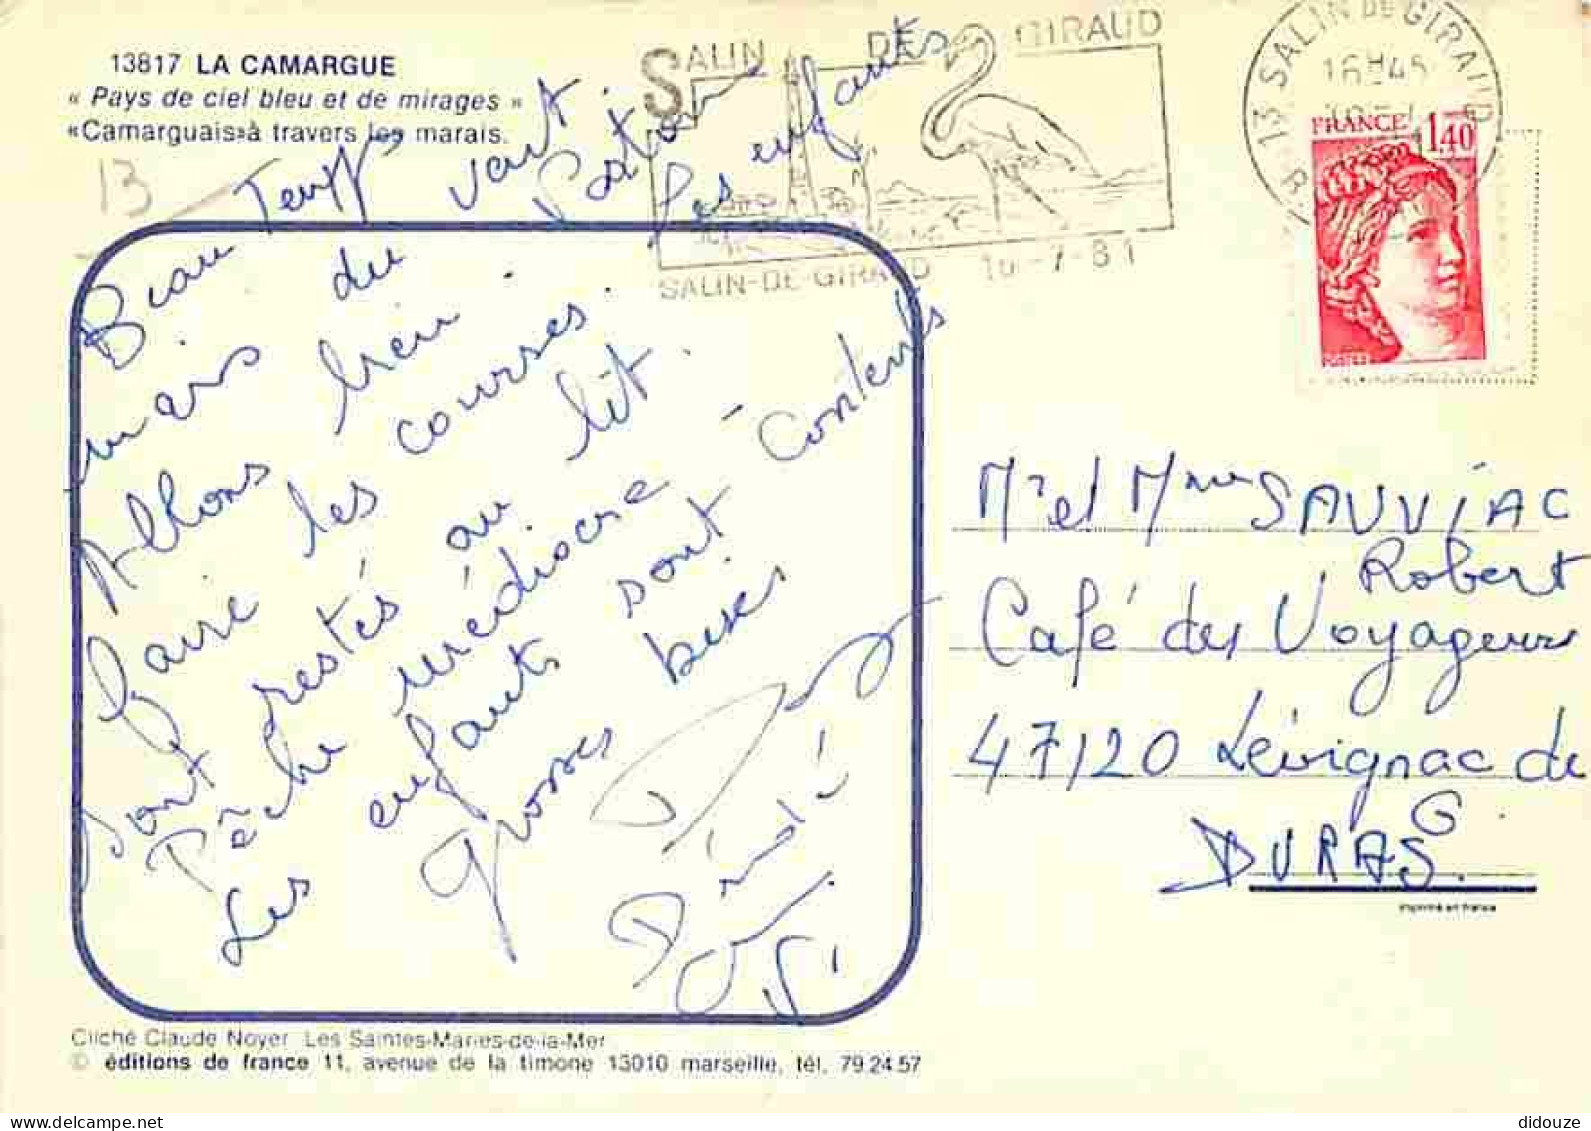 13817 LA CAMARGUE
« Pays de ciel bleu et de mirages »
«Camarguais»à travers les marais.
13
SALIN DE GIRAUD
SALIN-DE-GIRAUD 10-7-81
13 SALIN DE GIRAUD
16H45
FRANCE 1,40
Beau Temps vant
mais du
Allons bien.
faire les courses. Les enfants
sont restés au lit.
Pêche médiocre -
Les enfants sont contents
grosses bises
Mr et Mme SAUVIAC
Robert
Café des Voyageurs
47120 Lévignac de
G.
DURAS.
imprimé en france
Cliché Claude Noyer Les Saintes-Maries-de-la-Mer
© éditions de france 11, avenue de la timone 13010 marseille, tél. 79.24.57
didouze